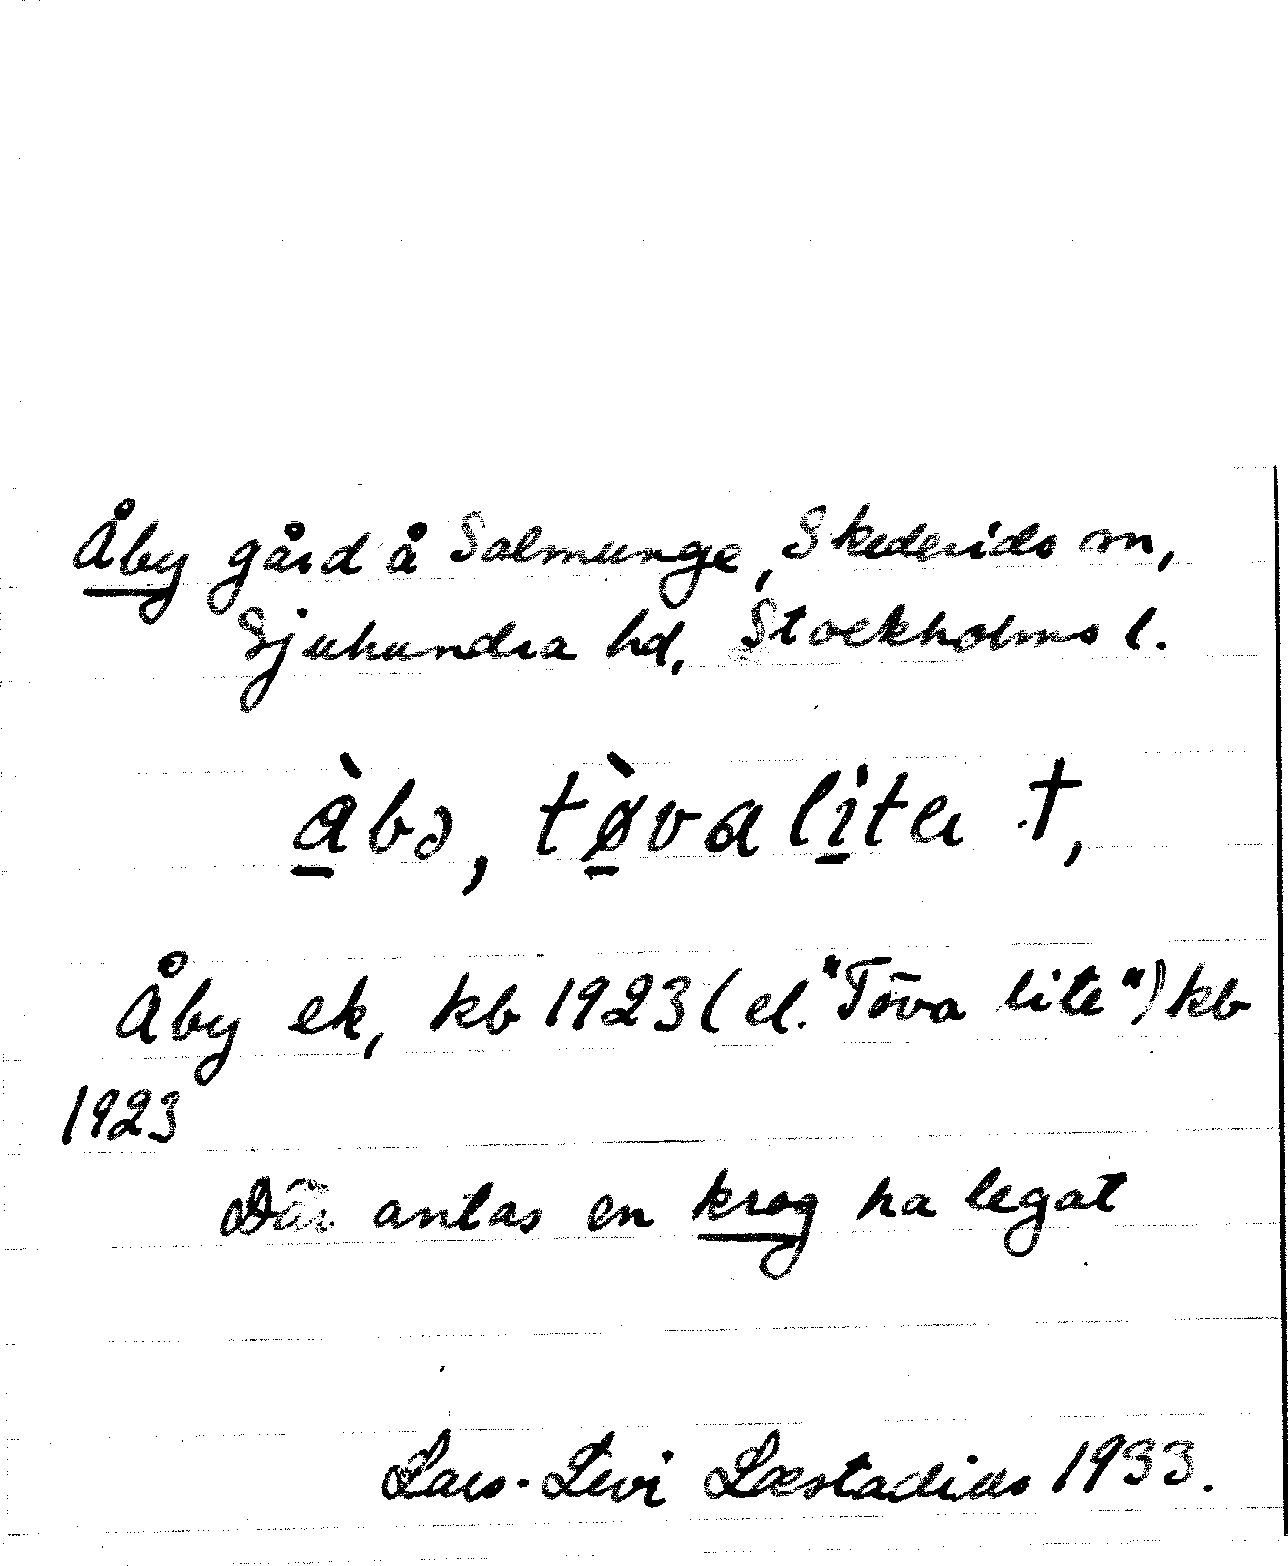 Åby gård å Salmunge, Skederids sn,
Sjuhundra hd, Stockholms l.
àbə, tø̀valitɐ †,
Åby ek, kb 1923 (el. "Tōva lite") kb
1923
Där antas en krog ha legat
Lars-Levi Læstadius 1933.